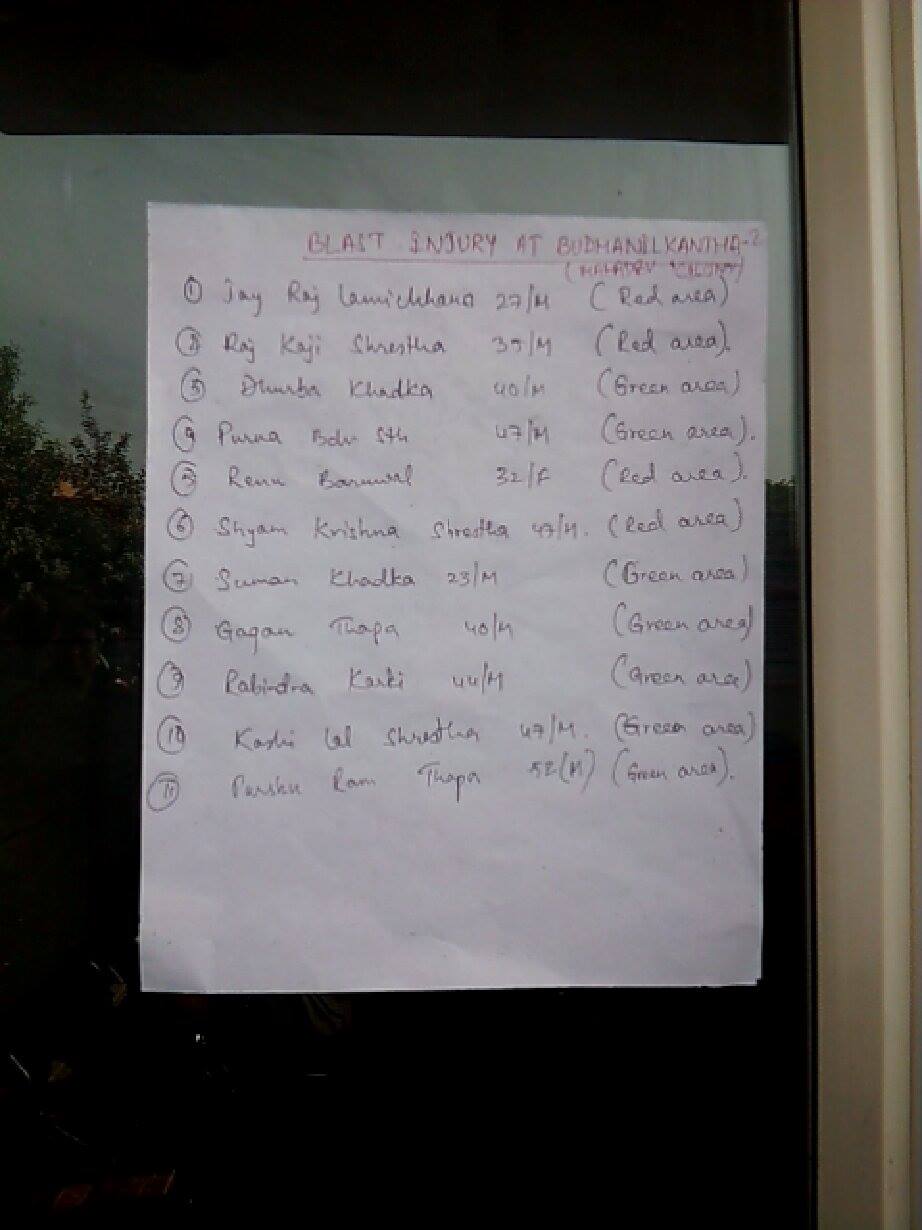 BLAST INJURY AT BUDHANILKANTHA-2
(MAHADEV COLONY)
① Jay Raj Lamichhane 27/M (Red area)
② Raj Kaji Shrestha 39/M (Red area).
③ Dhurba Khadka 40/M (Green area)
④ Purna Bdr Sth 47/M (Green area).
⑤ Renu Baruwal 32/F (Red area).
⑥ Shyam Krishna Shrestha 47/M. (Red area)
⑦ Suman Khadka 23/M (Green area)
⑧ Gagan Thapa 40/M (Green area)
⑨ Rabindra Karki 44/M (Green area)
⑩ Kashi Lal Shrestha 47/M. (Green area)
⑪ Parshu Ram Thapa 52(M) (Green area).